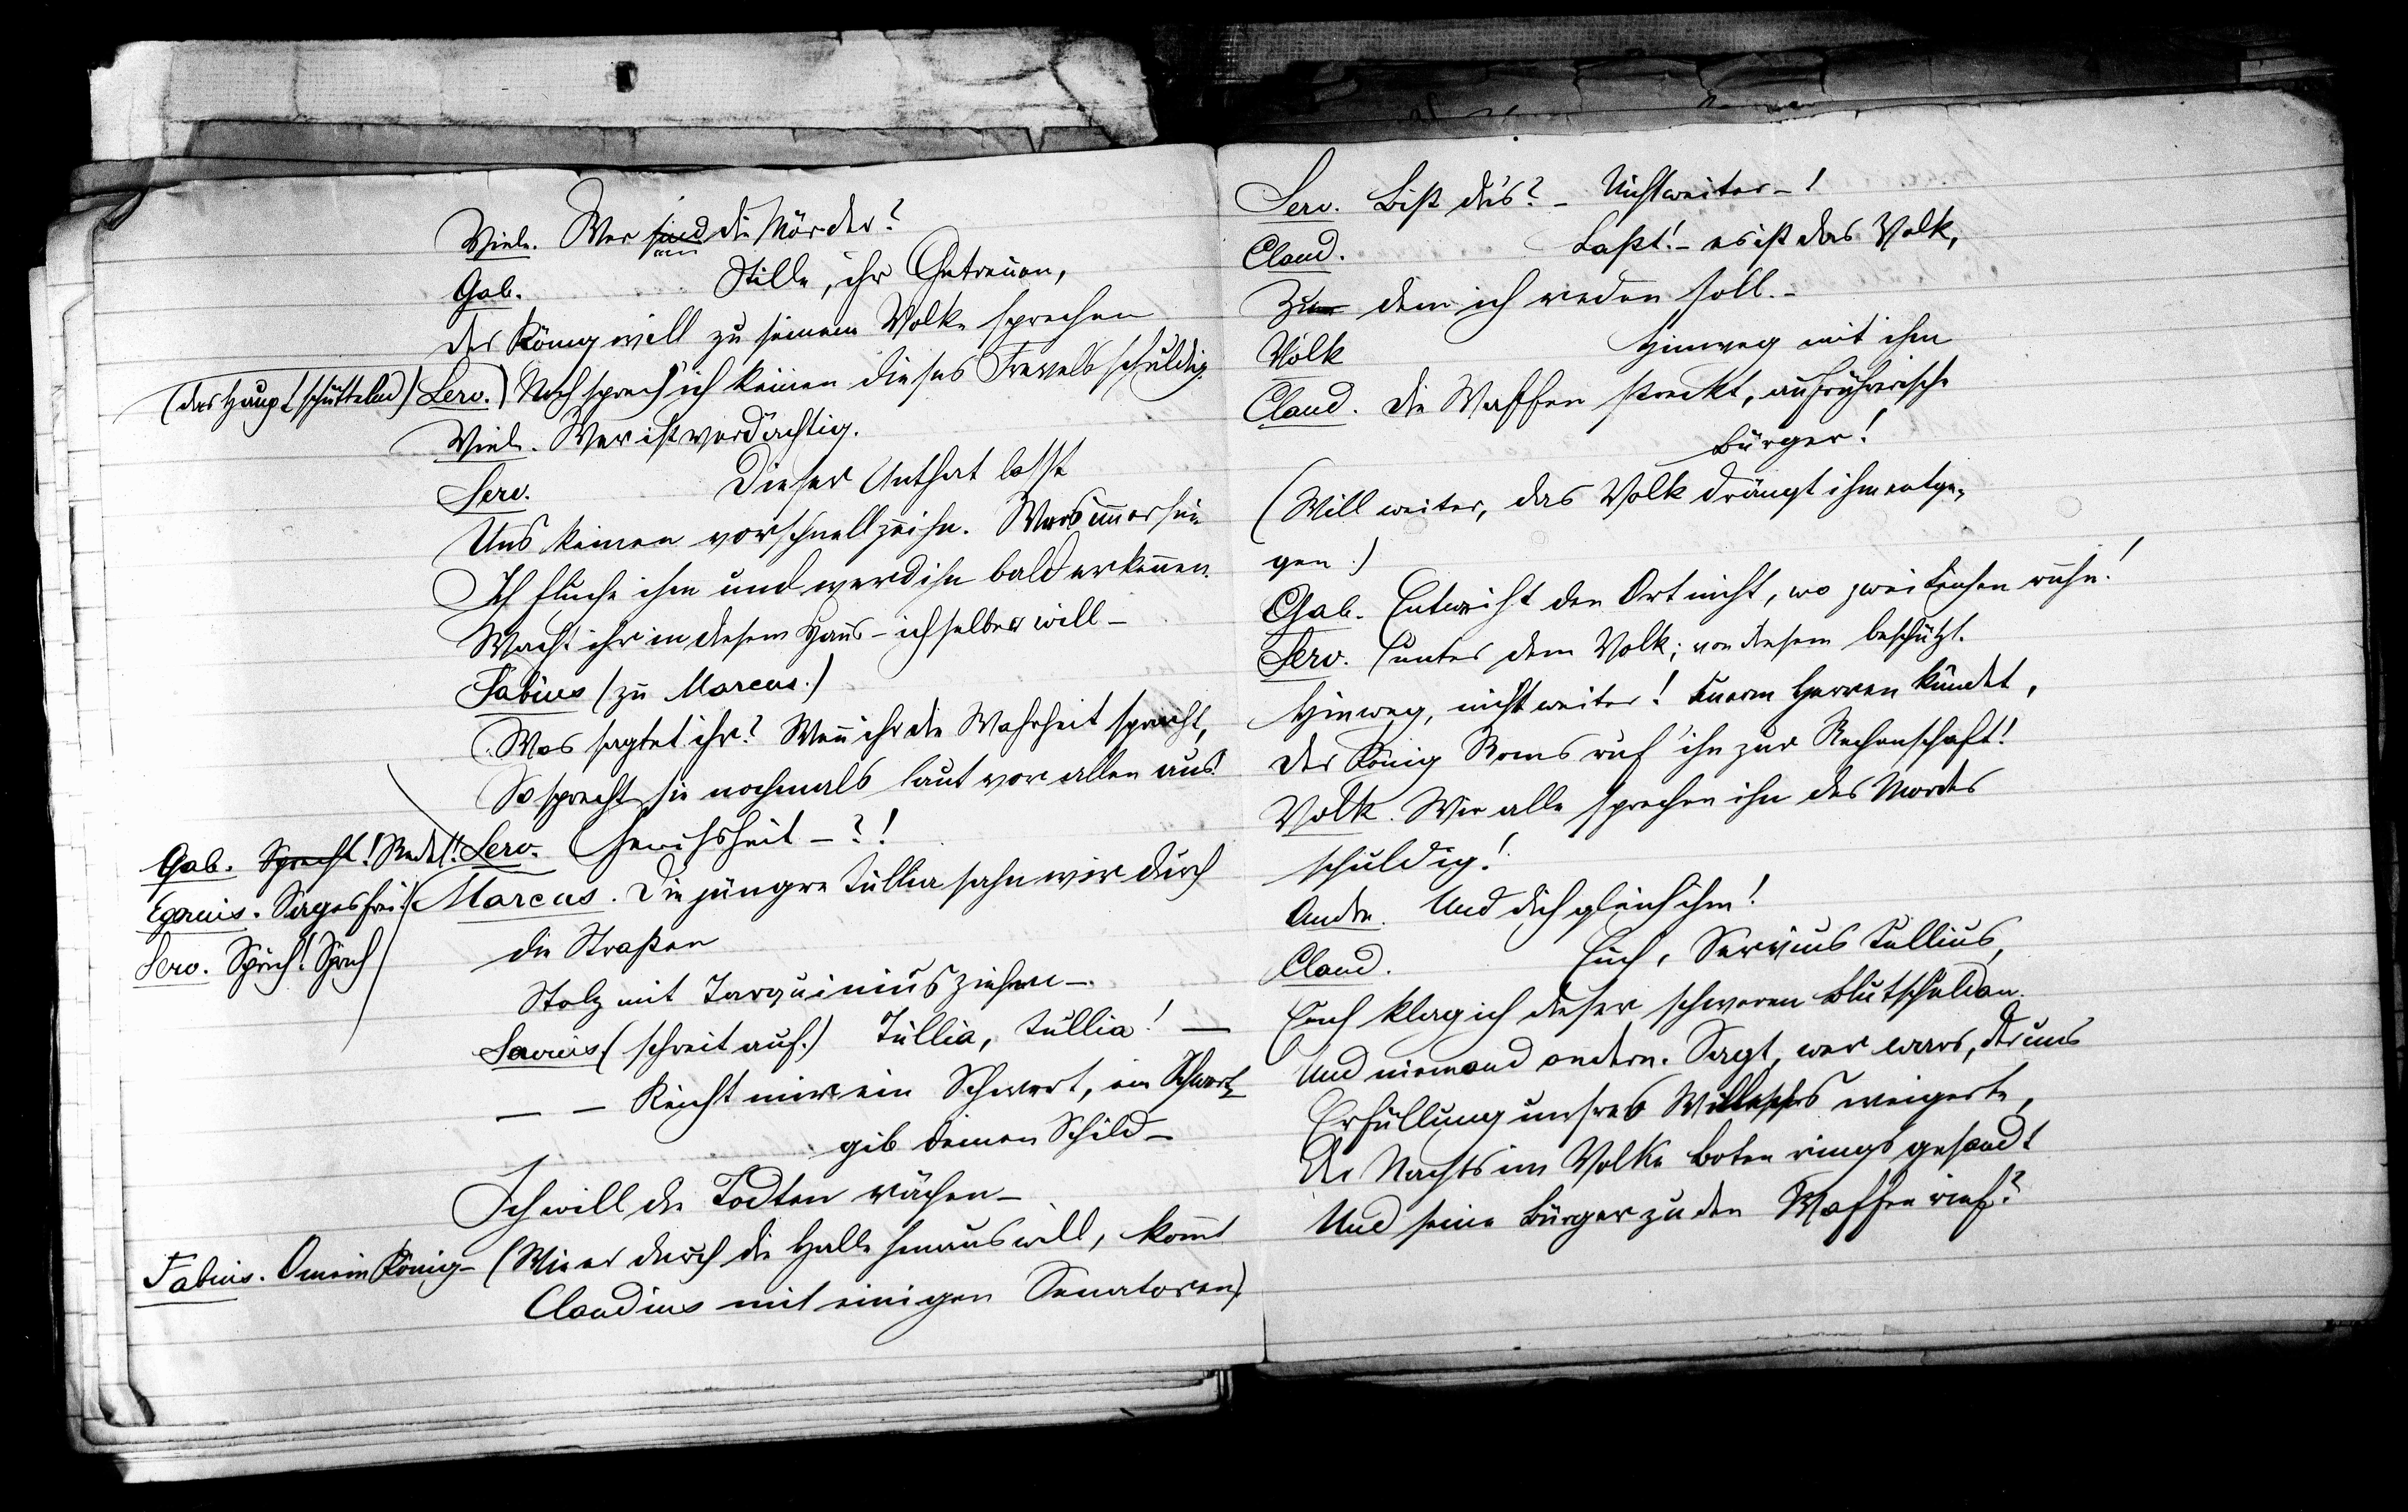 Viele. Wer sind die Mörder?
Gab. Stille, ihr Getreuen,
Der König will zu seinem Volke sprechen
(das Haupt schüttelnd) Serv.) Noch sprech' ich keinen dieses Frevels schuldig.
Viele. Wer ist verdächtig.
Serv. Dieser Unthat lasst
Uns keinen vorschnell zeihn. Wers immer sei
Ich fluche ihm und werd ihn bald erkennen.
Wacht ihr in diesem Haus – ich selber will –
Fabius (zu Marcus.)
Was sagtet ihr? Wenn ihr die Wahrheit spracht,
So sprecht sie nochmals laut vor allen aus!
Gab. Sprecht! Redet! Serv. Gewissheit – ?!
Egerius. Sag es frei! Marcus. Die jüngre Tullia sahn wir durch
Serv. Sprich! Sprich die Straßen
Stolz mit Tarquinius ziehen –
Servius (schreit auf.) Tullia, Tullia! —
— – Reicht mir ein Schwert, ein Schwert,
gib deinen Schild –
Ich will die Todten rächen –
Fabius. O mein König – (Wie er durch die Halle hinaus will, kommt
Claudius mit einigen Senatoren)
Serv. Bist du's? – Nicht weiter – !
Claud. Laßt! – es ist das Volk,
Zu dem ich reden soll. –
Volk Hinweg mit ihm
Claud. Die Waffen streckt, aufrührerische
Bürger!
(Will weiter, das Volk drängt ihm entge-
gen.)
Gab. Entweiht den Ort nicht, wo zwei Leichen ruhn!
Serv. (unter dem Volk; von diesem beschützt.
Hinweg, nicht weiter! Euerm Herren kündet,
Der König Roms ruf' ihn zur Rechenschaft!
Volk. Wir alle sprechen ihn des Mordes
schuldig!
Andre. Und dich gleich ihm!
Claud. Euch, Servius Tullius,
Euch klag ich dieser schweren Blutschuld an
Und niemand andern. Sagt, wer wars, der uns
Erfüllung unsres Willens weigerte,
Der Nachts im Volke Boten rings gesandt
Und seine Bürger zu den Waffen rief?